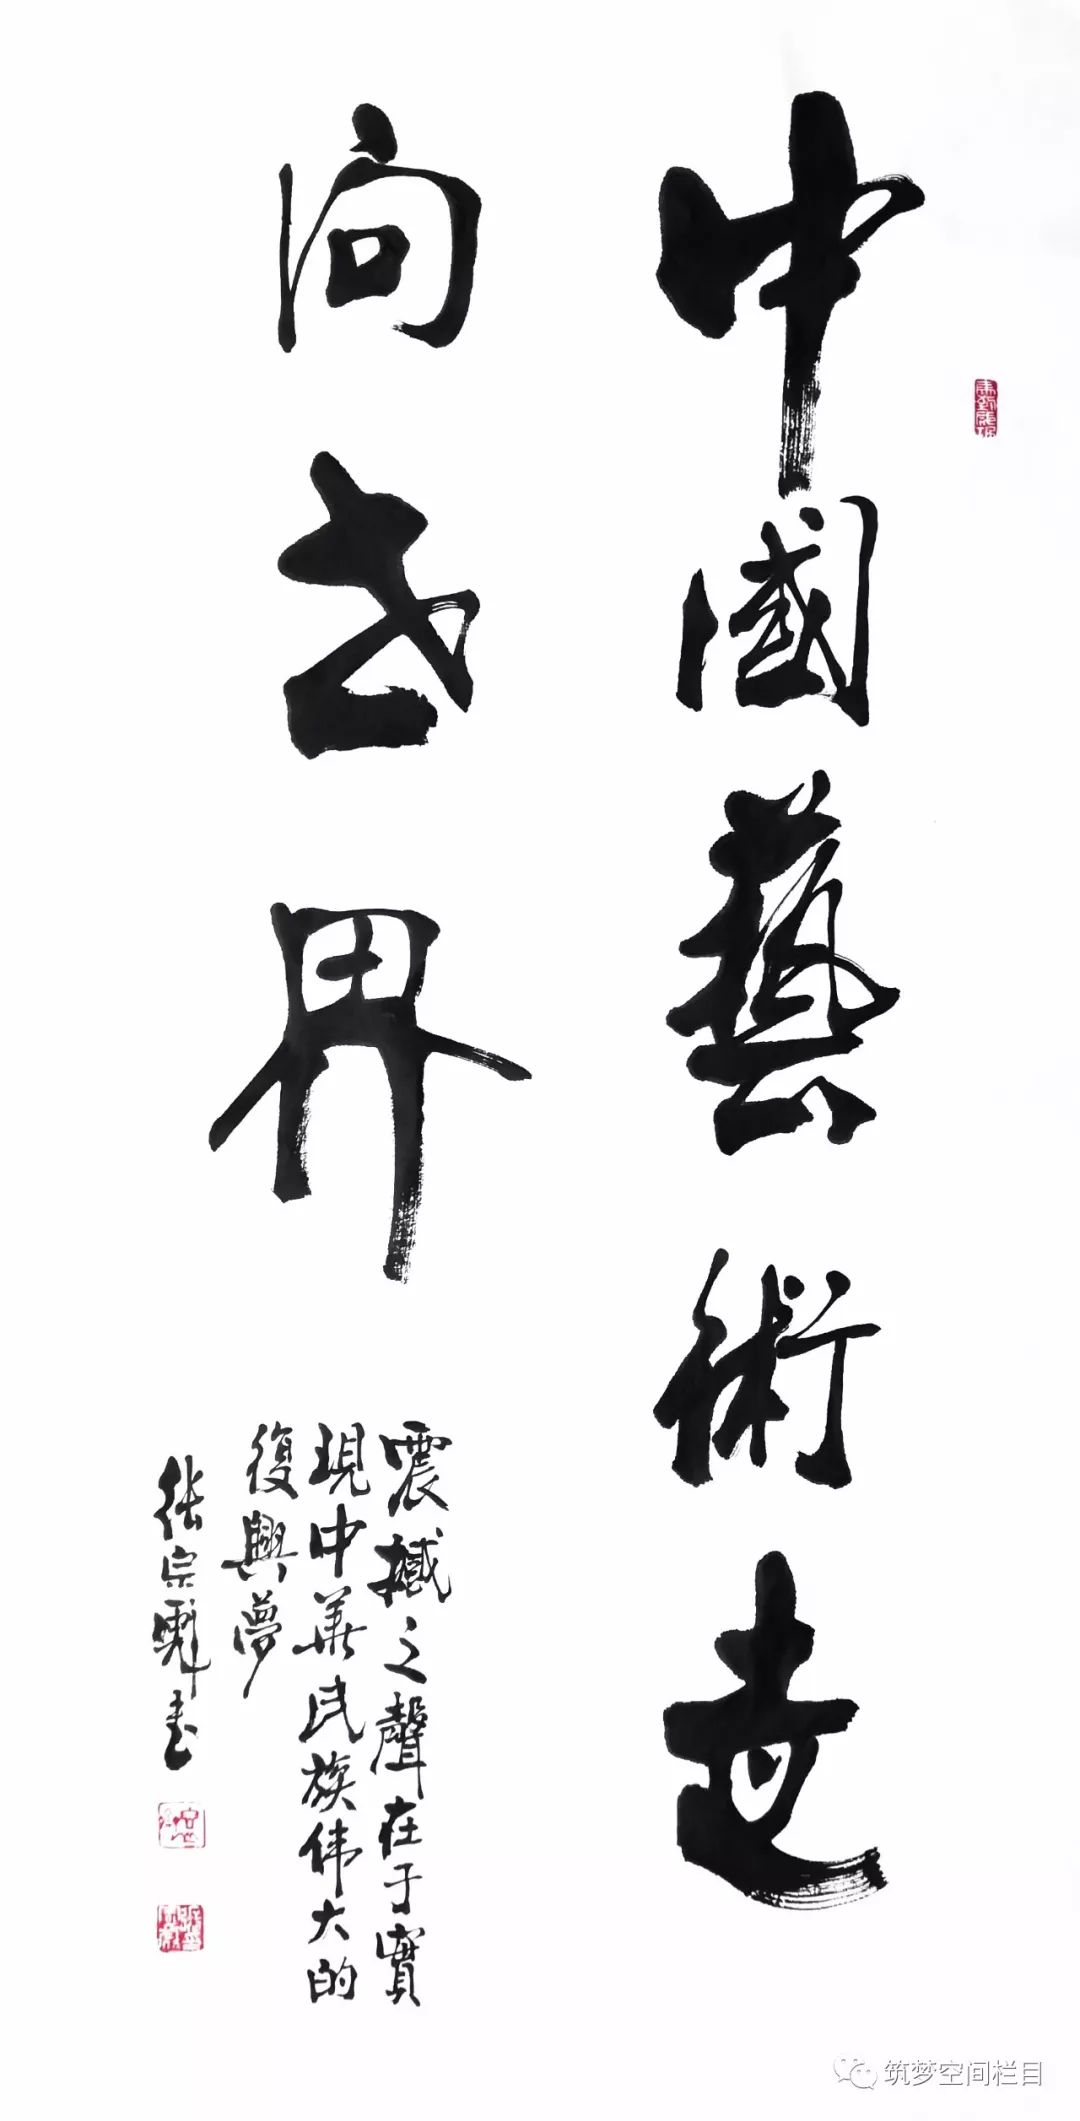 中國藝術走
向世界
震撼之聲在于實
現中華民族伟大的
復興夢
张宗彪书
筑梦空间栏目